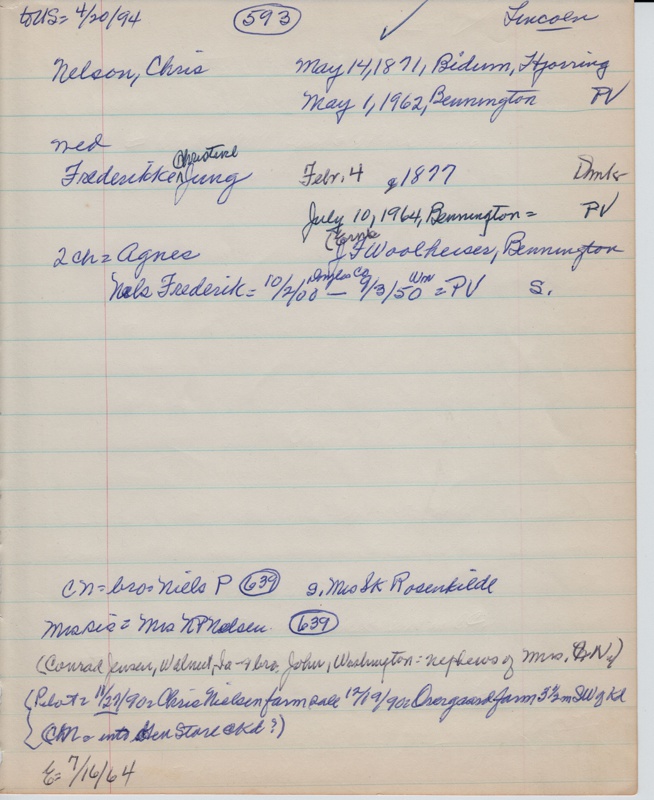 to US = 4/20/94 593 Lincoln
Nelson, Chris May 14, 1871, Bidum, Hjorring
May 1, 1962, Bennington PV
med
Christine
Frederikke Jung Febr. 4 1877
July 10, 1964, Bennington = PV
2 ch = Agnes J F Woolheiser, Bennington
Nels Frederik = 10/2/00 — 9/3/50 = PV S.
CN = bro = Niels P 639 s, Mrs SK Rosenkilde
Mrs sis = Mrs NP Madsen. 639
(Conrad Jensen, Walnut, Ia - & bro. John, Washington = nephews of Mrs.
(Pilot = 11/27/90 = Chris Nielsen farm sale 12/19/90 = Overgaard farm 3 1/2 m SW of Kd
CN = into Gen Store c Kd?)
E = 7/16/64